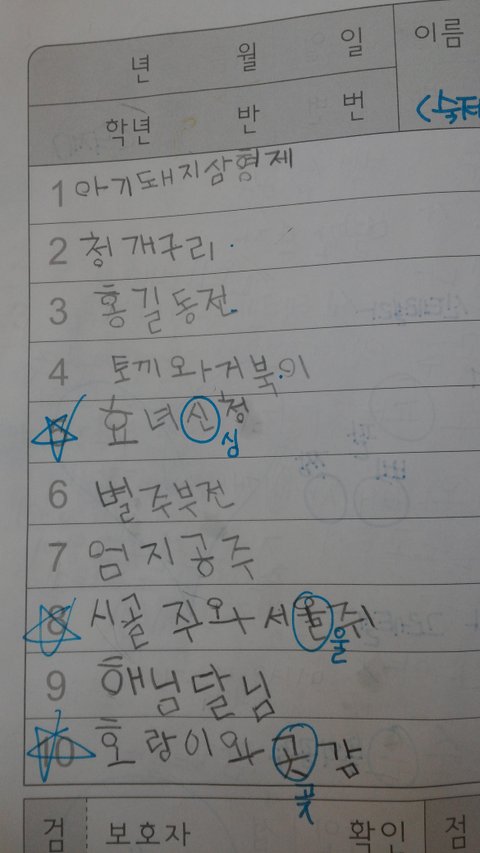 년 월 일 이름
학년 반 번
1 아기돼지삼형제
2 청개구리
3 홍길동전
4 토끼와거북이
5 효녀신청
심
6 별주부전
7 엄지공주
8 시골 쥐와 서울쥐
울
9 해님달님
10 호랑이와 곳감
곶
검 보호자 확인 점